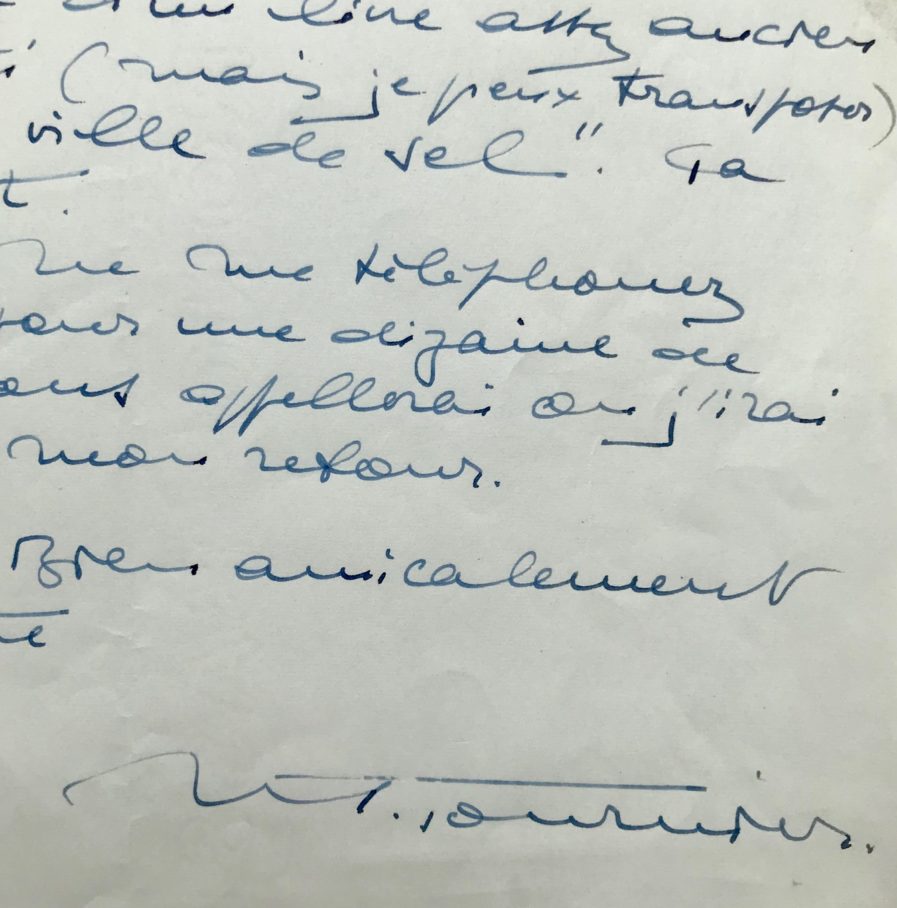 livre assez ancien
(mais je peux transposer)
ville de sel". Ça
t.
ne me téléphonez
pour une dizaine de
vous appellerai ou j'irai
mon retour.
Bien amicalement
M. Tournier.